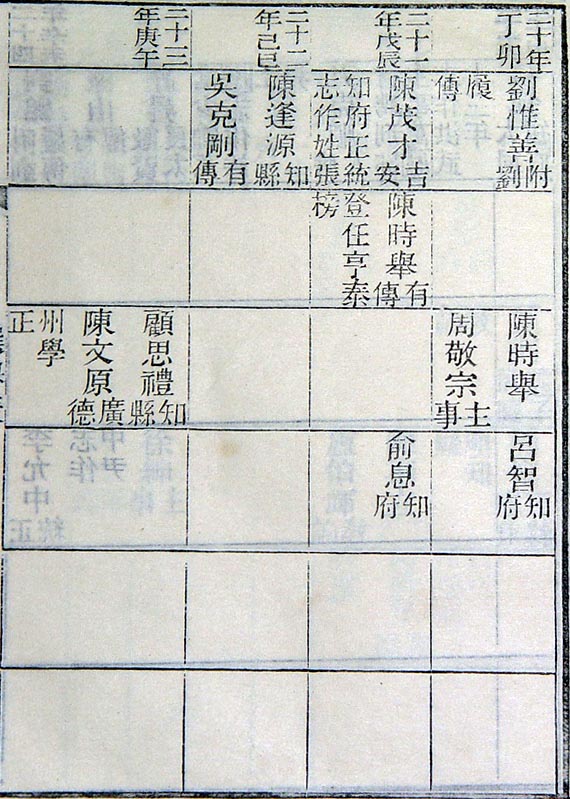 二十年丁卯
劉惟善附劉
履傳
陳時舉
周敬宗主事
呂智知府
二十一年戊辰
陳茂才吉安
知府正統志作姓張
陳時舉有傳
登任亨泰榜
俞息知府
二十二年己巳
陳逢源知縣
吳克剛有傳
二十三年庚午
顧思禮知縣
陳文原廣德
州學正